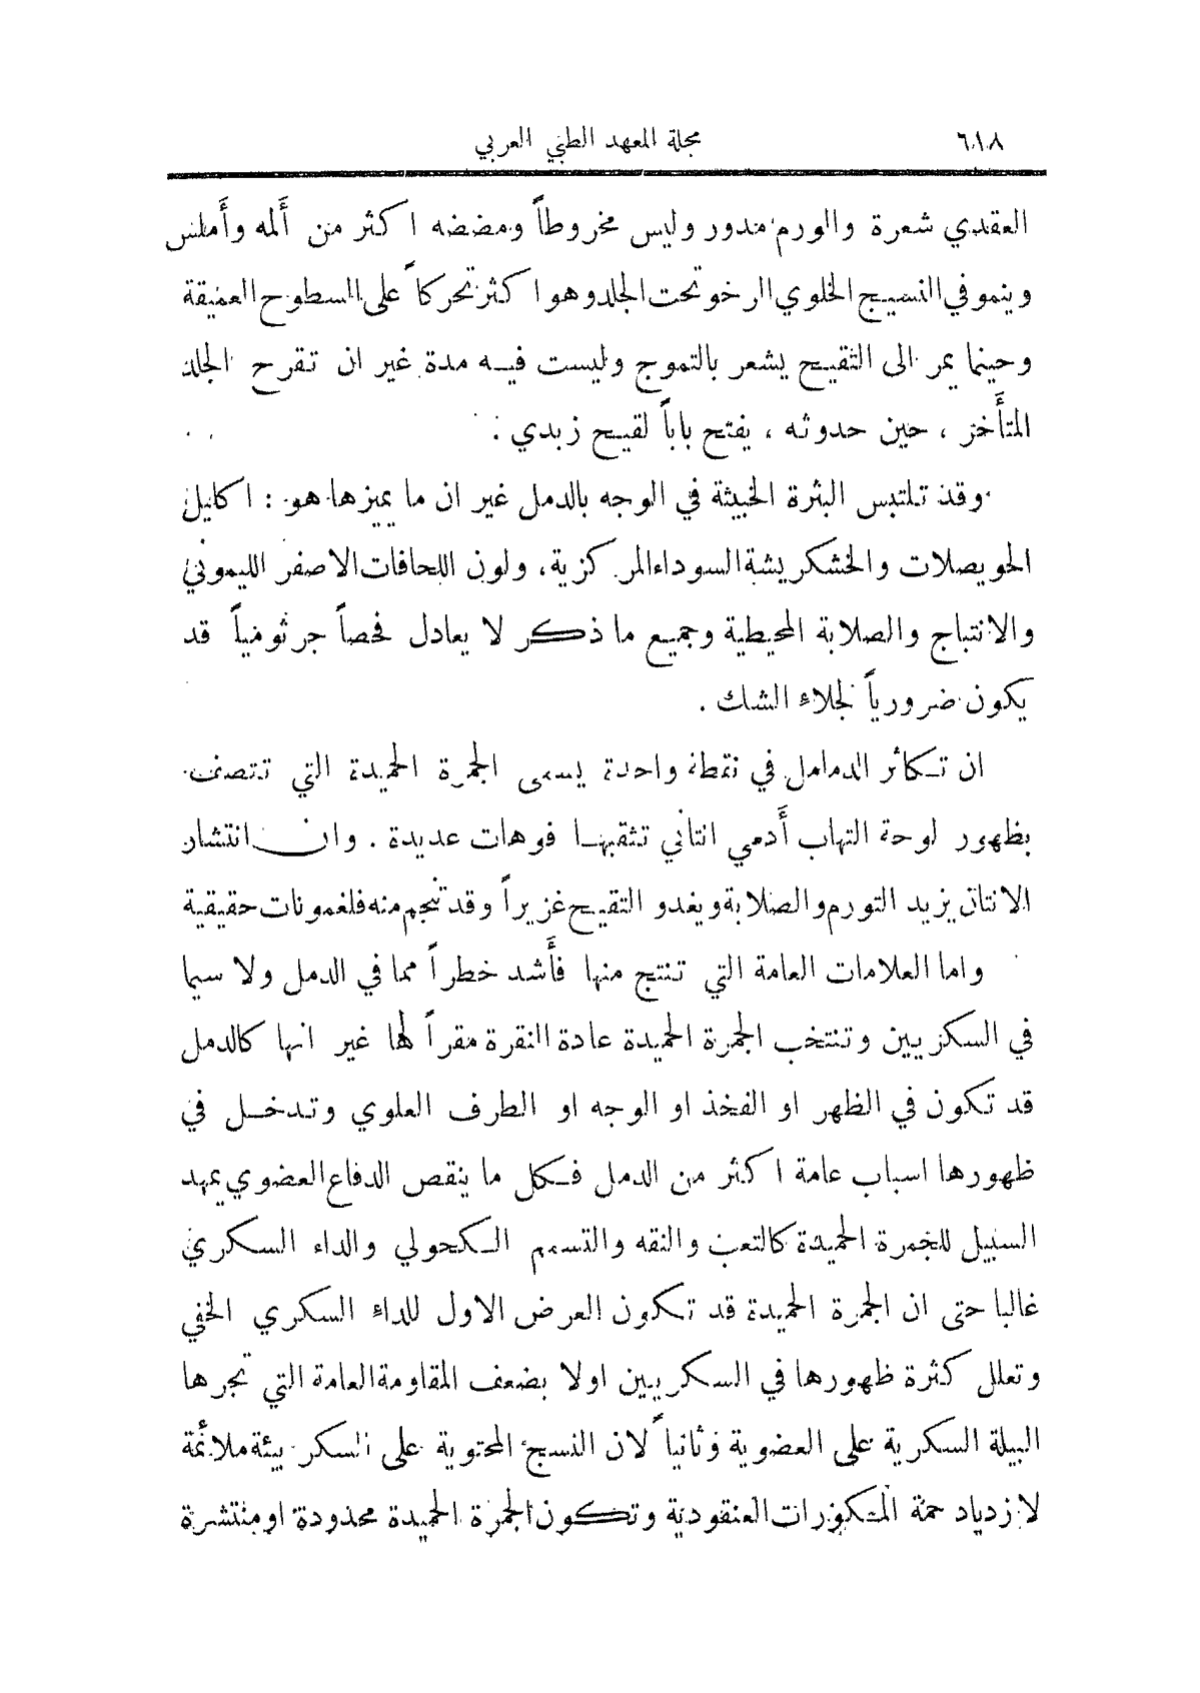 ٦١٨ مجلة المعهد الطبي العربي
العقدي شعرة والورم مدور وليس مخروطاً ومضضه اكثر من أَلمه وأَملس
وينمو في النسيج الخلوي الرخو تحت الجلد وهو اكثر تحركاً على السطوح العميقة
وحينما يمر الى التقيح يشعر بالتموج وليست فيه مدة غير ان تقرح الجلد
المتأَخر ، حين حدوثه ، يفتح باباً لقيح زبدي .
وقد تلتبس البثرة الخبيثة في الوجه بالدمل غير ان ما يميزها هو : اكليل
الحويصلات والخشكريشة السوداء المركزية ، ولون اللحافات الاصفر الليموني
والانتباج والصلابة المحيطية وجميع ما ذكر لا يعادل فحصاً جرثومياً قد
يكون ضرورياً لجلاء الشك .
ان تكاثر الدمامل في نقطة واحدة يسمى الجمرة الحميدة التي تتصف
بظهور لوحة التهاب أَدمي انتاني تثقبها فوهات عديدة . وان انتشار
الانتان يزيد التورم والصلابة ويغدو التقيح غزيراً وقد تنجم منه فلغمونات حقيقية
واما العلامات العامة التي تنتج منها فأَشد خطراً مما في الدمل ولا سيما
في السكريين وتنتخب الجمرة الحميدة عادة النقرة مقراً لها غير انها كالدمل
قد تكون في الظهر او الفخذ او الوجه او الطرف العلوي وتدخل في
ظهورها اسباب عامة اكثر من الدمل فكل ما ينقص الدفاع العضوي يمهد
السبيل للجمرة الحميدة كالتعب والنقه والتسمم الكحولي والداء السكري
غالبا حتى ان الجمرة الحميدة قد تكون العرض الاول للداء السكري الخفي
وتعلل كثرة ظهورها في السكريين اولا بضعف المقاومة العامة التي تجرها
البيلة السكرية على العضوية وثانياً لان النسج المحتوية على السكر بيئة ملائمة
لازدياد حمة المكورات العنقودية وتكون الجمرة الحميدة محدودة او منتشرة